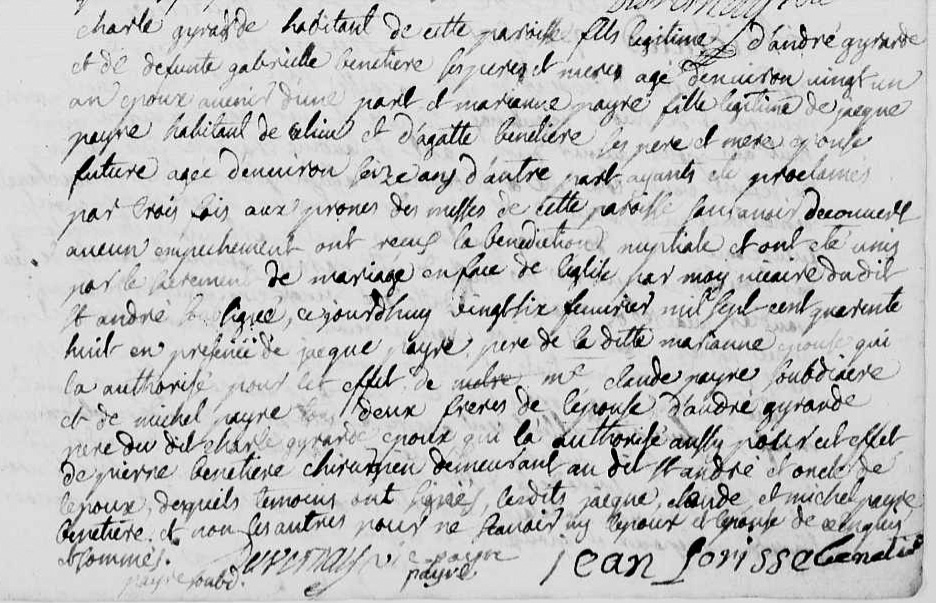 charle gyrarde habitant de cette paroisse fils legitime d'andré gyrarde
et de defunte gabrielle benetiere ses pere et mere agé d'environ vingt un
an epoux avenir d'une part et marianne payre fille legitime de jacque
payre habitant de ce lieu et d'agatte benetiere ses pere et mere epouse
future agée denviron seize ans d'autre part ayants été proclamés
par trois fois aux prones des messes de cette paroisse sans avoir decouvert
aucun empechement ont receu la benediction nuptiale et ont eté unis
par le sacrement de mariage en face de leglise par moy vicaire du dit
st andré ce jourdhuy vingt six fevrier mil sept cent quarente
huit en presence de jacque payre pere de la ditte marianne epouse qui
la authorisé pour cet effet de me claude payre soubdiacre
et de michel payre tous deux freres de lepouse d'andré gyrarde
pere du dit charle gyrarde epoux qui la authorisé aussy pour cet effet
de pierre benetiere chirurgien demeurant au dit st andré et oncle de
lepoux, desquels temoins ont signés lesdits jacque, claude, et michel payre
benetiere et non les autres pour ne scavoir ny lepoux et lepouse de ce enquis
et sommés.
payre soubd. payre jean benetier